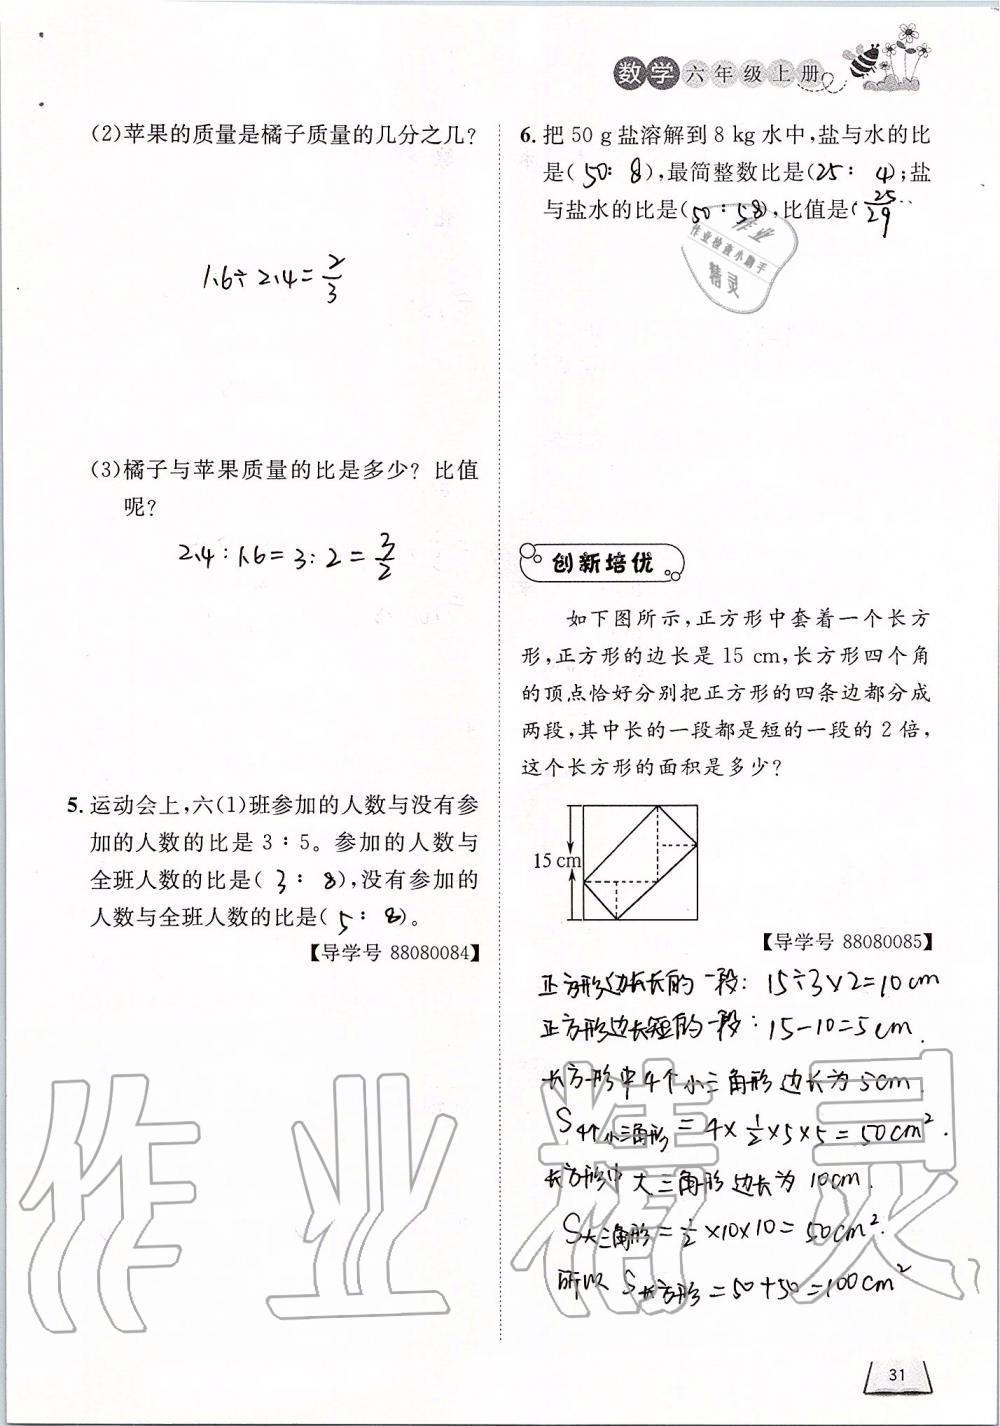 数学六年级上册
(2)苹果的质量是橘子质量的几分之几?
1.6÷2.4=2/3
(3)橘子与苹果质量的比是多少? 比值
呢?
2.4:1.6=3:2=3/2
5. 运动会上,六(1)班参加的人数与没有参
加的人数的比是 3∶5。参加的人数与
全班人数的比是( 3: 8),没有参加的
人数与全班人数的比是( 5: 8)。
【导学号 88080084】
6. 把 50 g 盐溶解到 8 kg 水中,盐与水的比
是( 50: 8),最简整数比是(25: 4);盐
与盐水的比是(50:58),比值是(25/29
作业
作业检查小助手
精灵
创新培优
如下图所示,正方形中套着一个长方
形,正方形的边长是 15 cm,长方形四个角
的顶点恰好分别把正方形的四条边都分成
两段,其中长的一段都是短的一段的 2 倍,
这个长方形的面积是多少?
15 cm
【导学号 88080085】
正方形边长长的一段: 15÷3×2=10cm
正方形边长短的一段:15-10=5cm.
长方形中4个小三角形边长为5cm.
S4个小三角形=4×1/2×5×5=50cm².
长方形中大三角形边长为10cm.
S大三角形=1/2×10×10=50cm².
所以 S长方形=50+50=100cm²
作业精灵
31